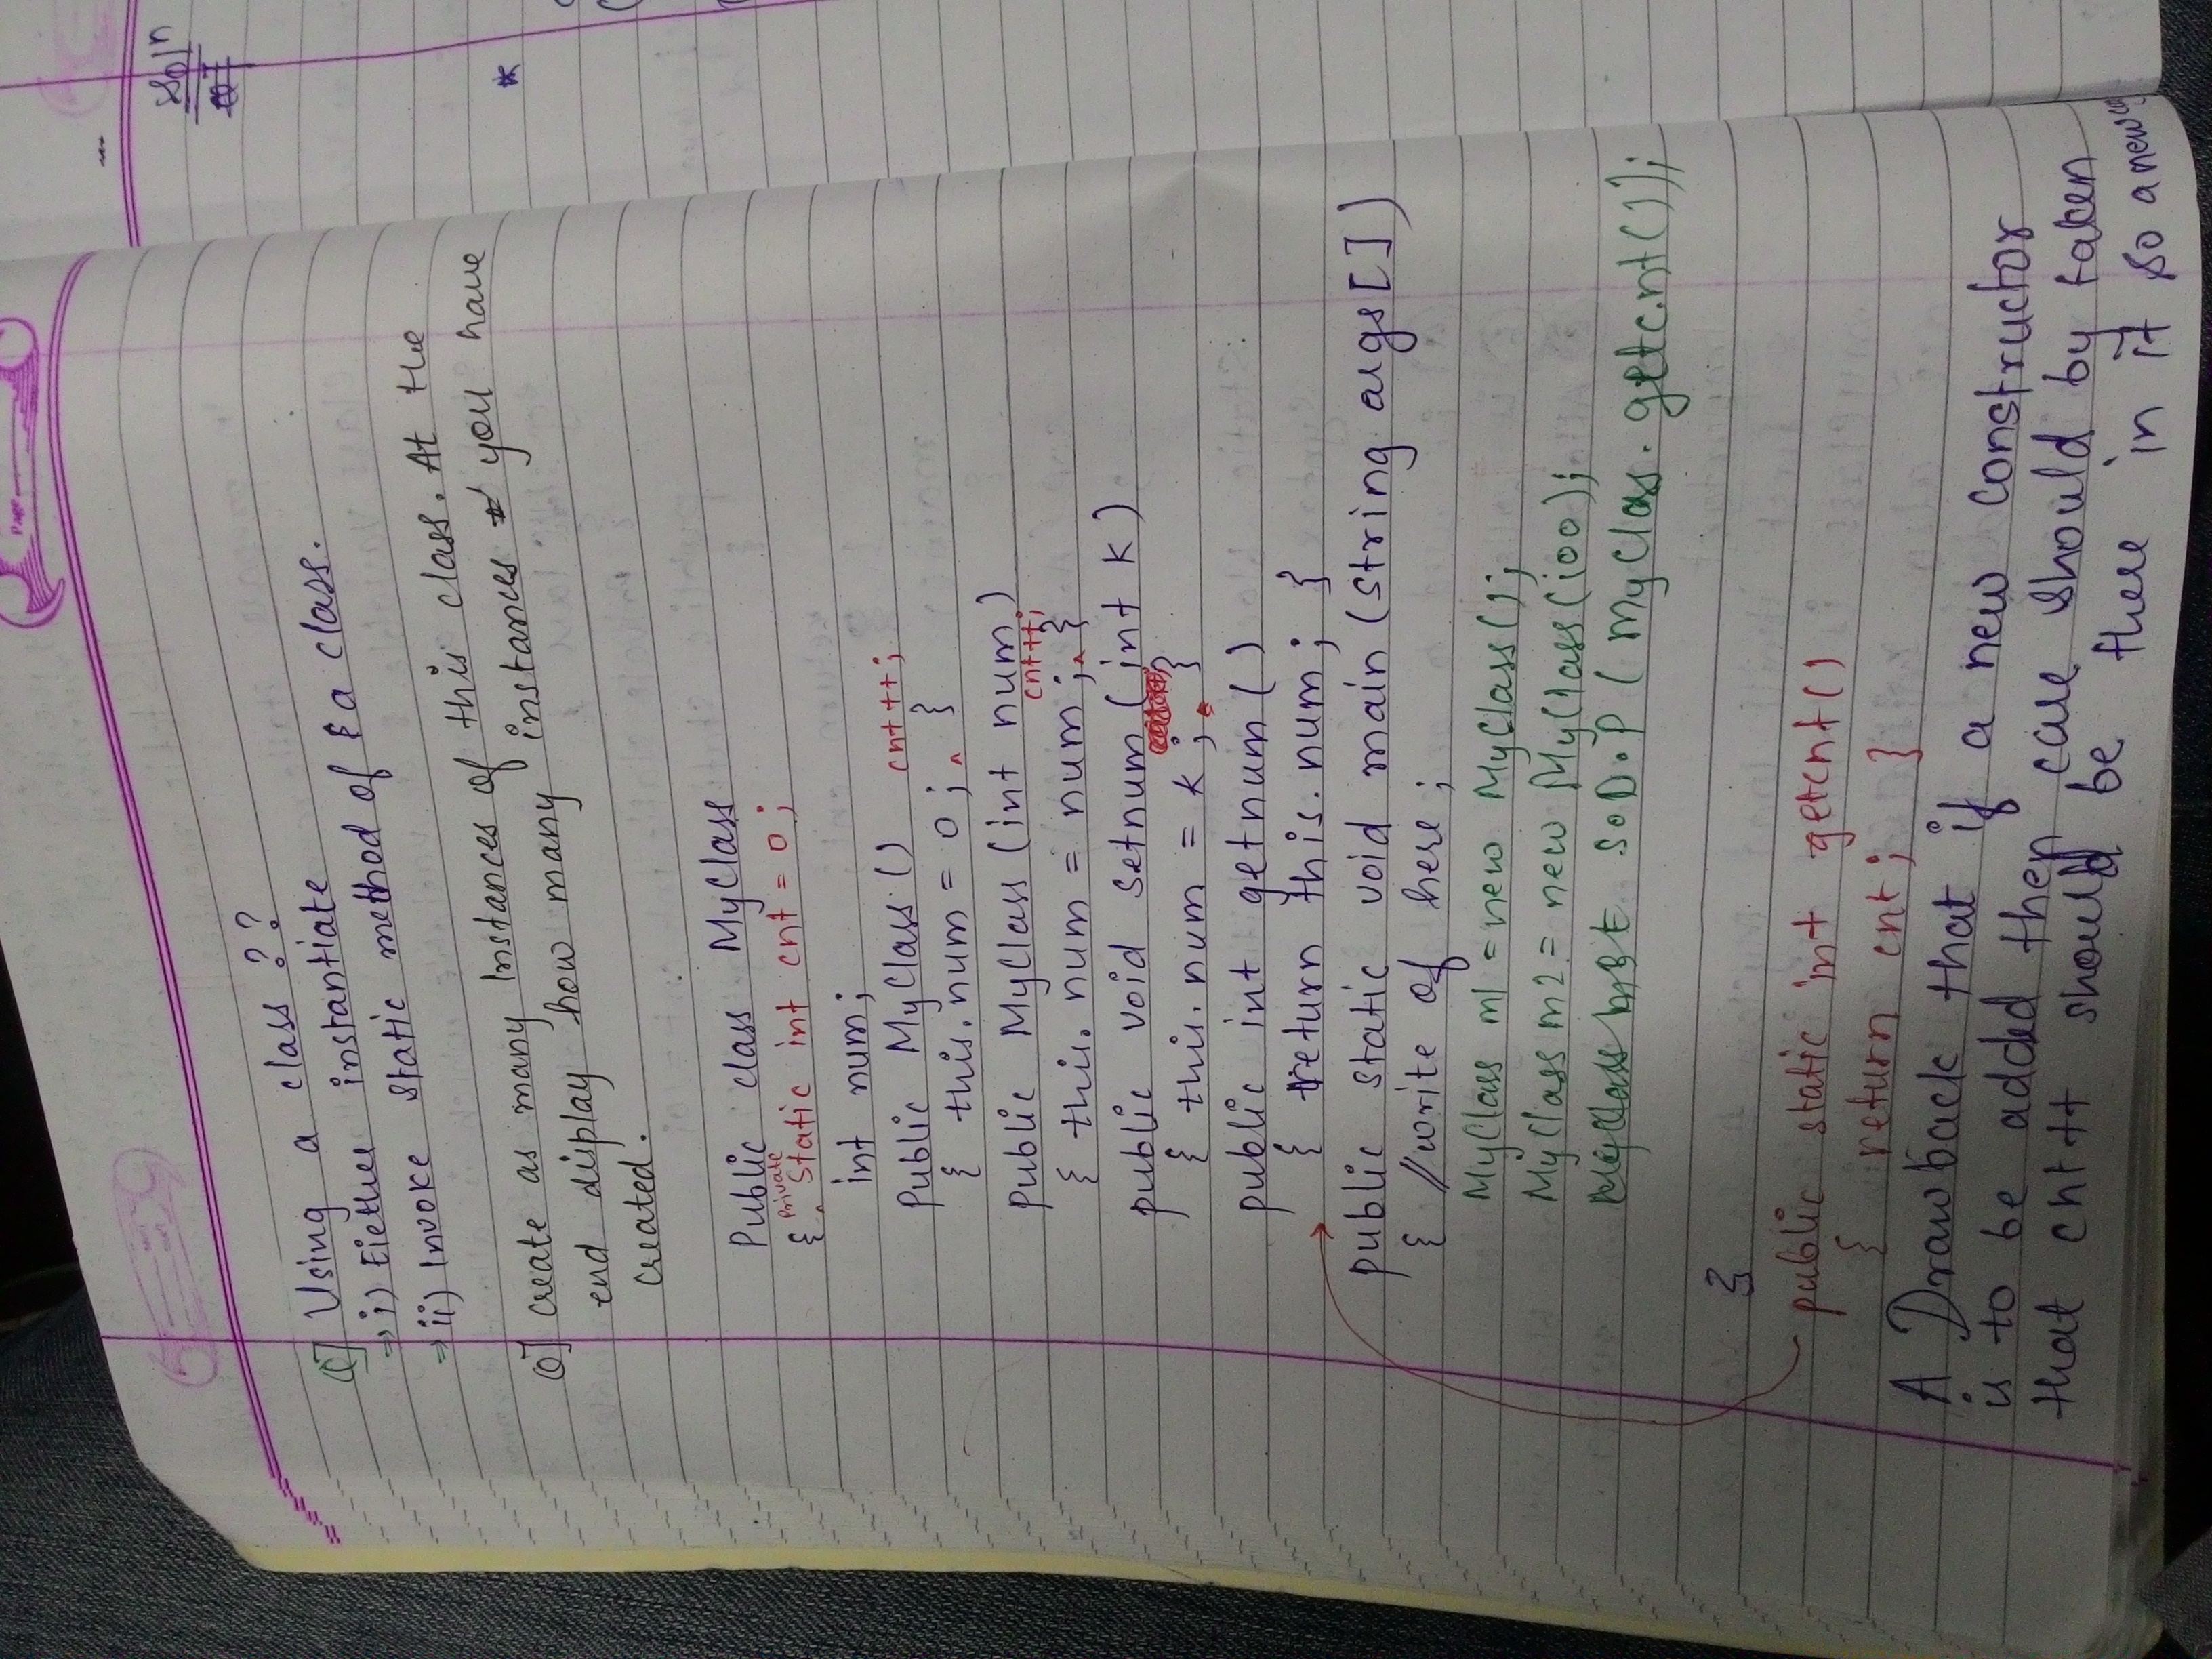 Page
Q] Using a class ??
⇒ i) Eiether instantiate
⇒ ii) Invoke static method of a class.
Q] create as many Instances of this class. At the
end display how many instances you have
created.
Public class MyClass
{ private static int cnt = 0;
int num;
Public MyClass() cnt++;
{ this.num = 0; }
public MyClass (int num)
cnt++;
{ this.num = num; }
public void setnum (int k)
{ this.num = k; }
public int getnum()
{ return this.num; }
public static void main (string args[])
{ //write of here;
MyClass m1 = new MyClass();
MyClass m2 = new MyClass(100);
S.O.P (MyClass.getcnt());
}
public static int getcnt()
{ return cnt; }
A Drawback that if a new constructor
is to be added then care should by taken
that cnt++ should be there in it so a new
Soln
*